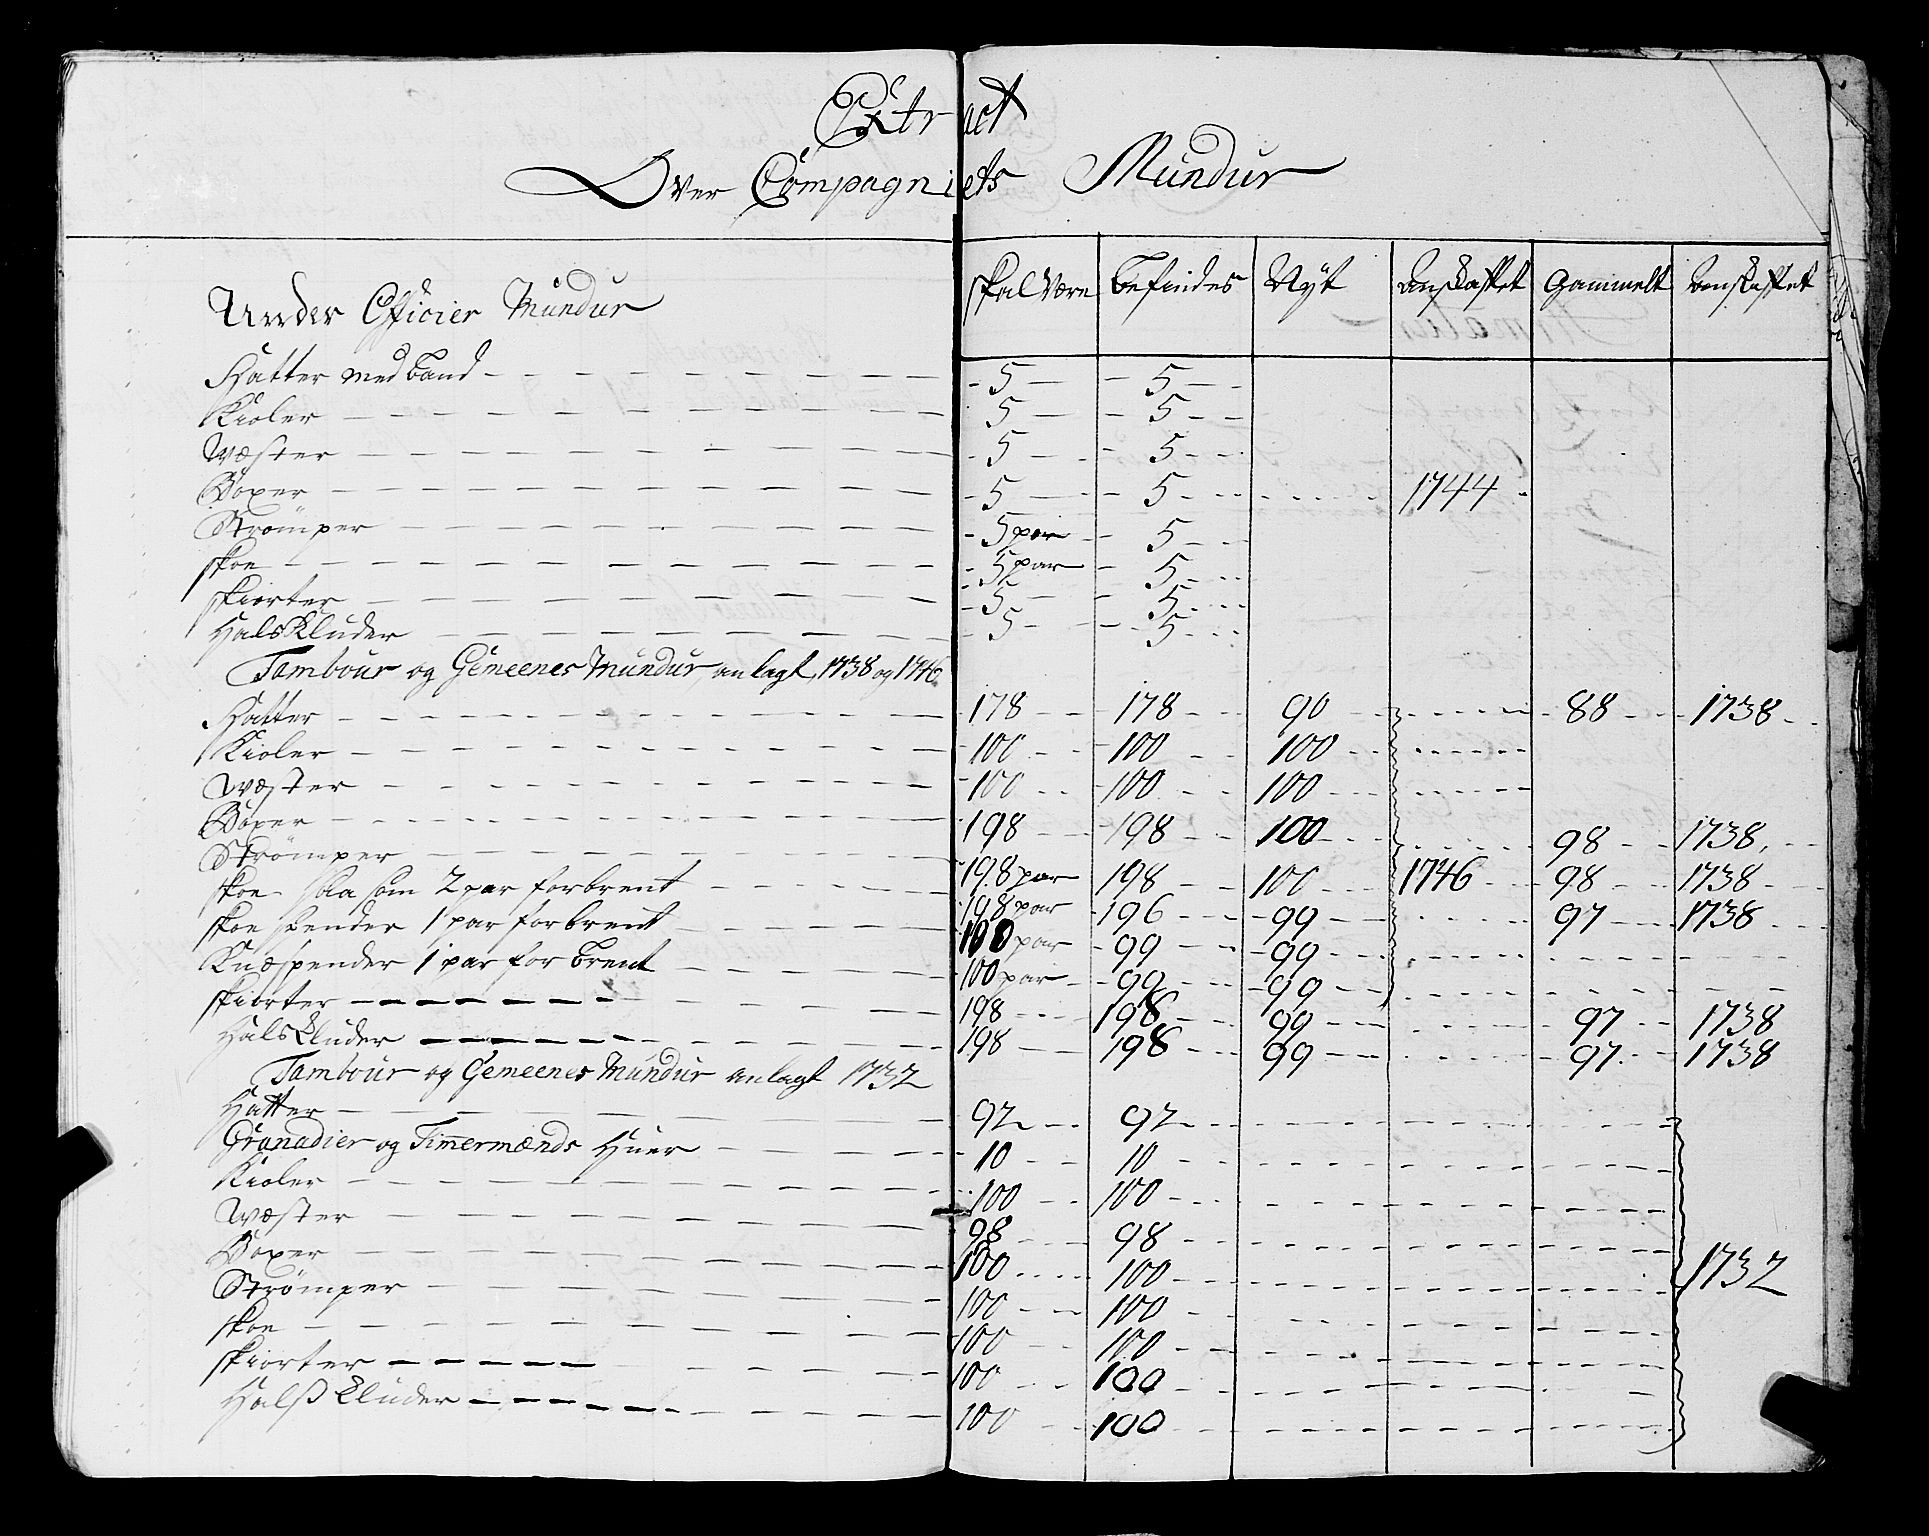 Extract
Over Compagniets Mundur
Under Officier Mundur | skal være | befindes | Nÿt | anskaffet | Gammelt | anskaffet
Hatter med band | 5 | 5
Kioler | 5 | 5
Wæster | 5 | 5
Boxer | 5 | 5 | 1744
Strømper | 5 par | 5
skoe | 5 par | 5
skiorter | 5 | 5
Halskluder | 5 | 5
Tambour og Gemeenes Mundur anlagt 1738 og 1746
Hatter | 178 | 178 | 90 | 88 | 1738
Kioler | 100 | 100 | 100
Wæster | 100 | 100 | 100
Boxer | 198 | 198 | 100 | 98 | 1738
Strømper | 198 par | 198 | 100 | 1746 | 98 | 1738
skoe saa som 2 par forbrent | 198 par | 196 | 99 | 97 | 1738
skoe spender 1 par forbrent | 100 par | 99 | 99
Knæspender 1 par forbrent | 100 par | 99 | 99
skiorter | 198 | 198 | 99 | 97 | 1738
Halskluder | 198 | 198 | 99 | 97 | 1738
Tambour og Gemeenes Mundur anlagt 1732
Hatter | 92 | 92
Granadier og Timermænds Huer | 10 | 10
Kioler | 100 | 100
Wæster | 98 | 98
Boxer | 100 | 100 | 1732
Strømper | 100 | 100
skoe | 100 | 100
skiorter | 100 | 100
Halskluder | 100 | 100